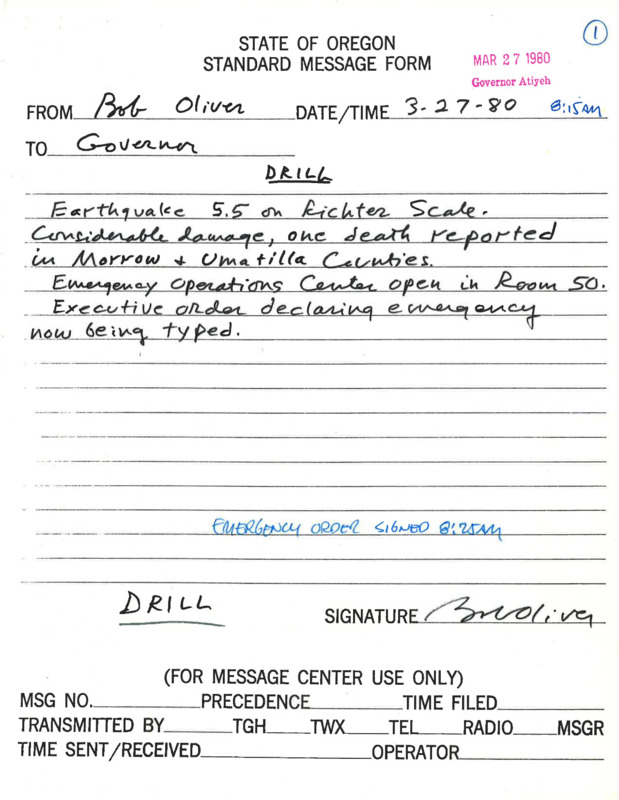 1
STATE OF OREGON
STANDARD MESSAGE FORM
MAR 27 1980
Governor Atiyeh
FROM Bob Oliver DATE/TIME 3-27-80 8:15AM
TO Governor
DRILL
Earthquake 5.5 on Richter Scale.
Considerable damage, one death reported
in Morrow & Umatilla Counties.
Emergency Operations Center open in Room 50.
Executive order declaring emergency
now being typed.
EMERGENCY ORDER SIGNED 8:25AM
DRILL
SIGNATURE Bob Oliver
(FOR MESSAGE CENTER USE ONLY)
MSG NO. PRECEDENCE TIME FILED
TRANSMITTED BY TGH TWX TEL RADIO MSGR
TIME SENT/RECEIVED OPERATOR